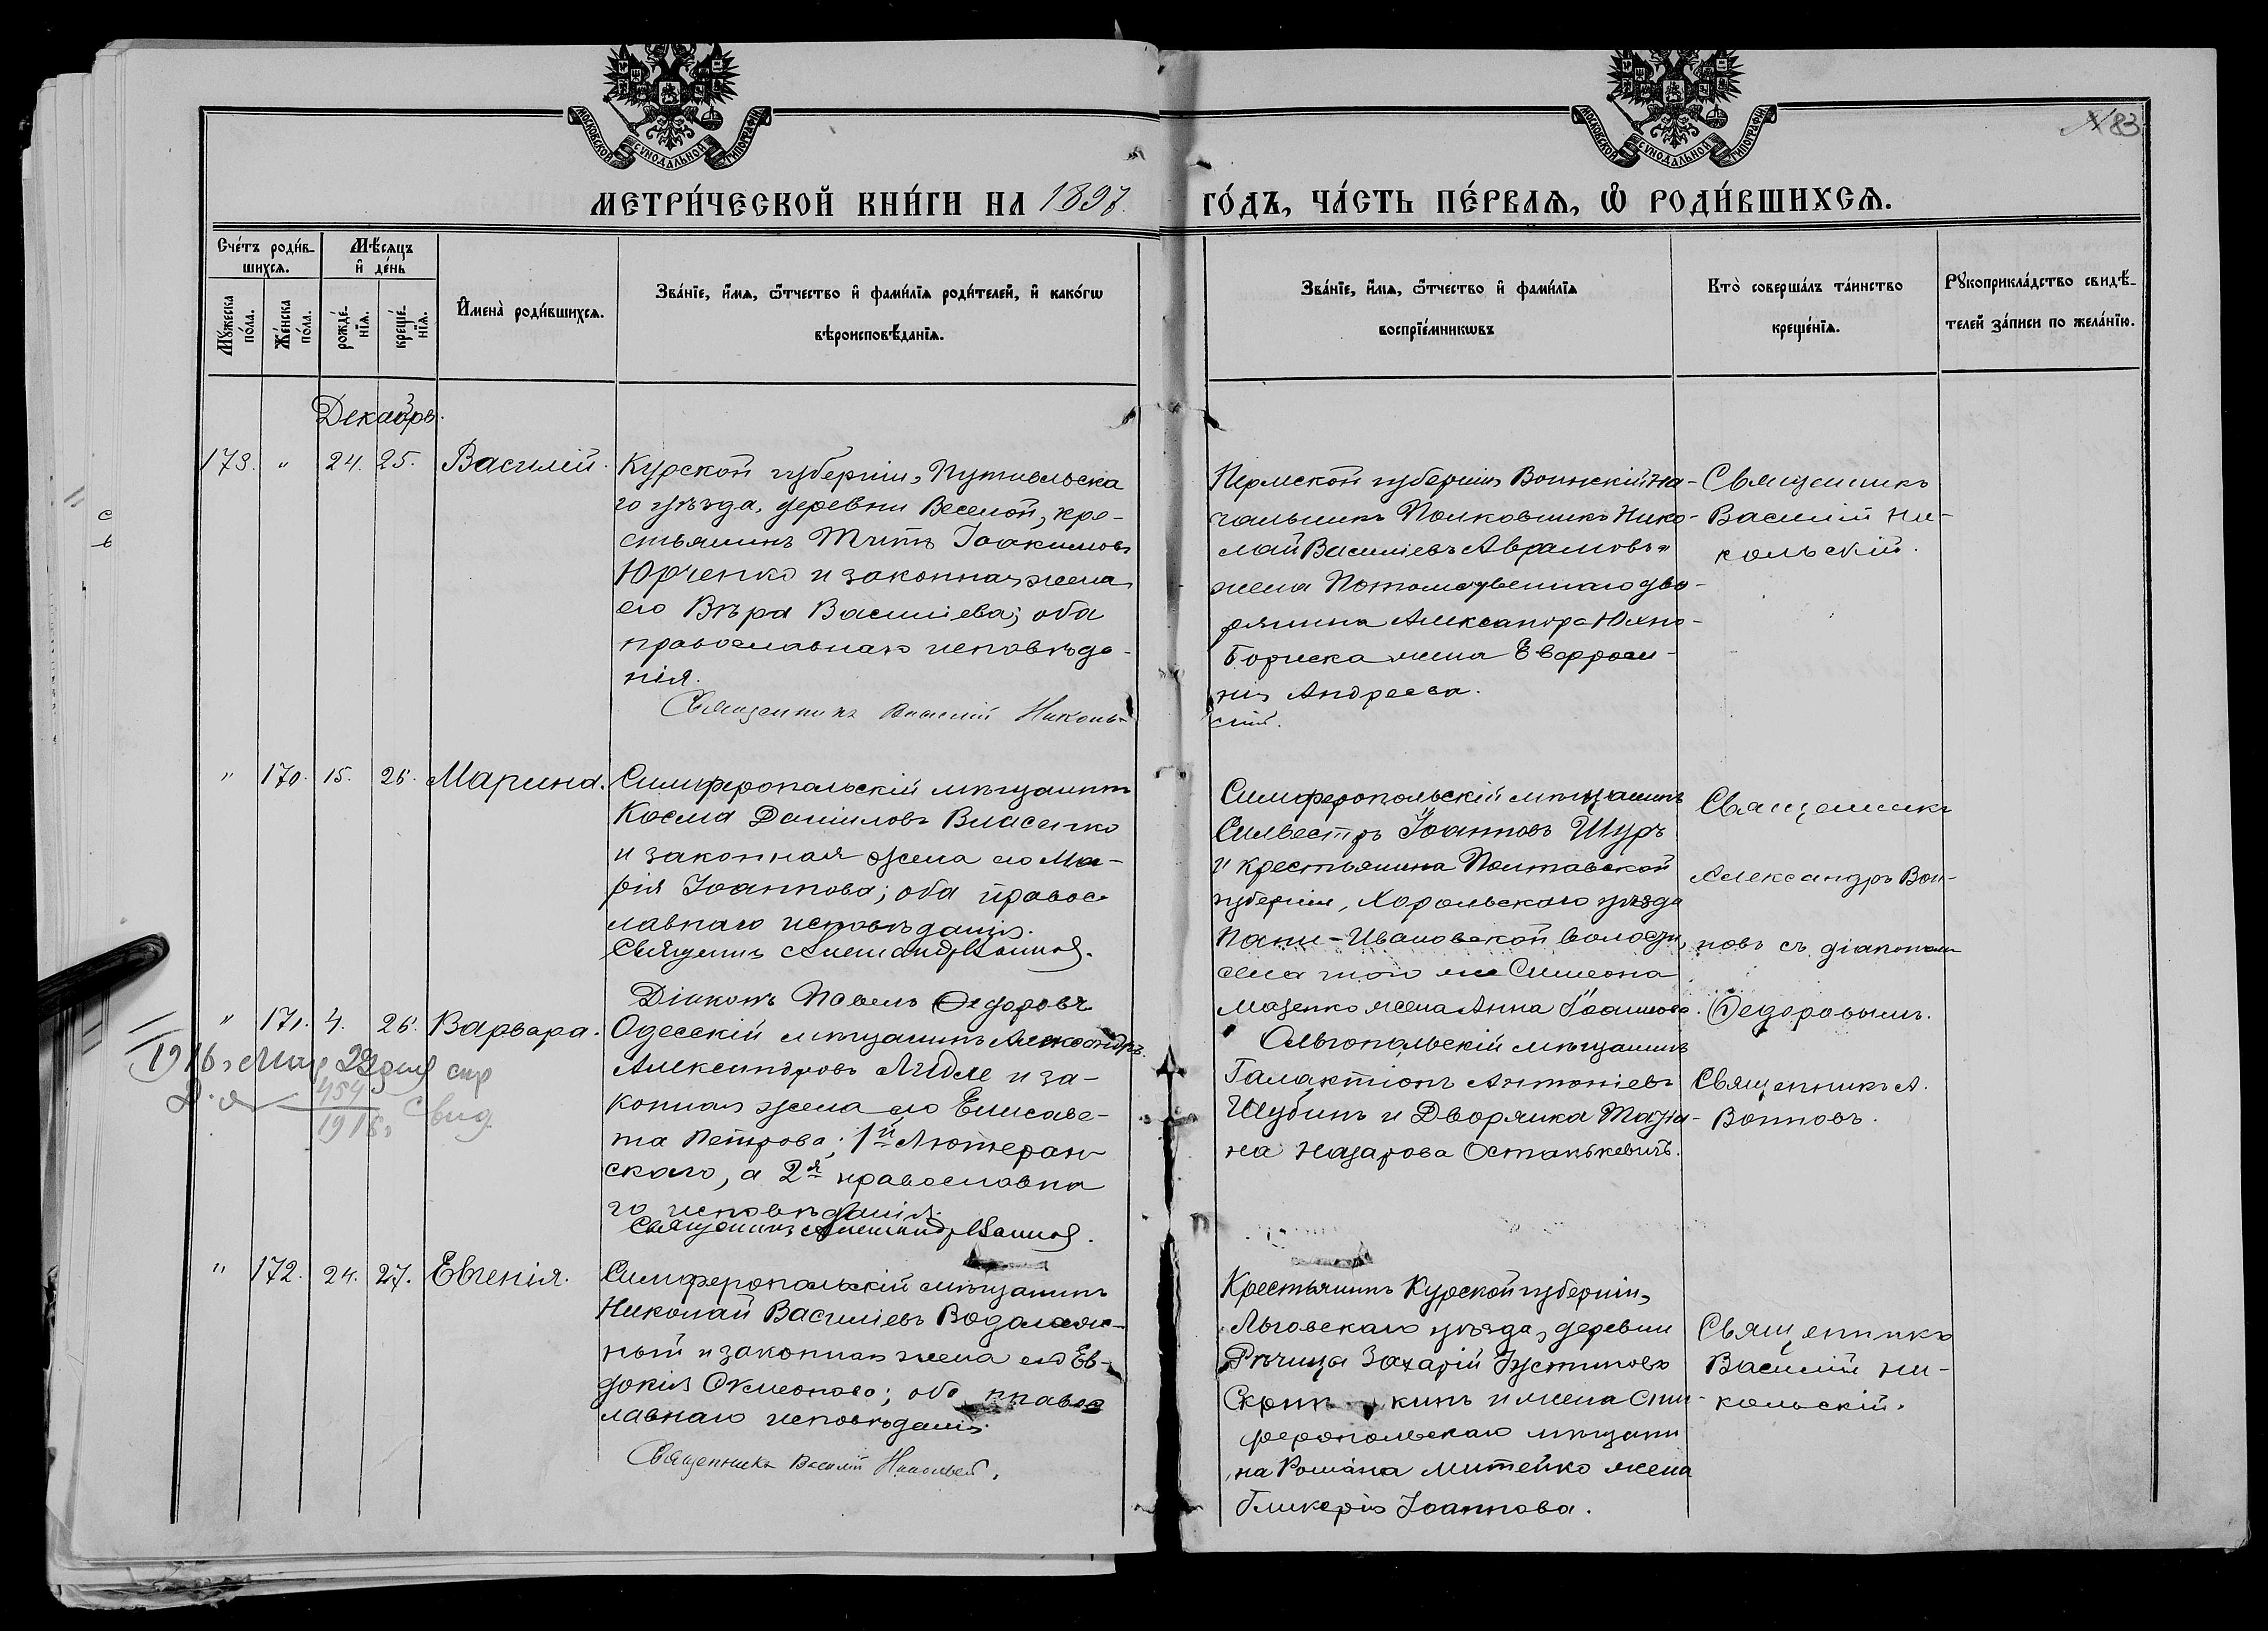 МОСКОВСКОЙ СѴНОДАЛЬНОЙ ТИПОГРАФІИ
МОСКОВСКОЙ СѴНОДАЛЬНОЙ ТИПОГРАФІИ
83
МЕТРИ́ЧЕСКОЙ КНИ́ГИ НА 1897. ГО́ДЪ, ЧА́СТЬ ПЕ́РВАѦ, Ѡ҆ РОДИ́ВШИХСѦ.
Сче́тъ роди́в-
шихсѧ.
Мѣ́сѧцъ
и҆ де́нь
Мꙋ́жеска
по́ла.
Же́нска
по́ла.
рожде́-
нїѧ.
креще́-
нїѧ.
И҆мена̀ роди́вшихсѧ.
Зва́нїе, и҆́мѧ, ѻ҆́тчество и҆ фами́лїѧ роди́телей, и҆ како́гѡ
вѣроисповѣ́данїѧ.
Зва́нїе, и҆́мѧ, ѻ҆́тчество и҆ фами́лїѧ
воспрїе́мникѡвъ
Кто̀ соверша́лъ та́инство
креще́нїѧ.
Рꙋкоприкла́дство свидѣ́-
телей за́писи по жела́нїю.
Декабрь.
173. " 24. 25. Василій.
Курской губерніи, Путивльска
го уѣзда, деревни Веселой, кре-
стьянинъ Титъ Іоакимовъ
Юрченко и законная жена
его Вѣра Василіева; оба
православнаго исповѣда-
нія.
Священникъ Василій Николь-
скій.
Пермской губерніи Воинскій на-
чальникъ Полковникъ Нико-
лай Василіевъ Аврамовъ и
жена Потомственнаго дво-
рянина Александра
жена Евфроси-
нія Андреева.
Священникъ
Василій Ни-
кольскій.
" 170. 15. 26. Марина.
Симферопольскій мѣщанинъ
Косма Даніиловъ Власенко
и законная жена его Ма-
рія Іоаннова; оба правос-
лавнаго исповѣданія.
Священникъ Александръ Воиновъ.
Діаконъ Павелъ Ѳедоровъ
Симферопольскій мѣщанинъ
Силвестръ Іоанновъ Шуръ
и крестьянина Полтавской
губерніи, Хорольскаго уѣзда
Пани-Ивановской волости,
села того же Симеона
Мазенко жена Анна Іоаннова.
Священникъ
Александръ Вои-
новъ съ діакономъ
Ѳедоровымъ.
" 171. 4. 26. Варвара.
1916 г. Мар 29 дня
454
1916 г. Свид
Одесскій мѣщанинъ Александръ
Александровъ Лидле и за-
конная жена его Елисаве-
та Петрова; 1й Лютеран-
скаго, а 2я православна
го исповѣданія.
Священникъ Александръ Воиновъ.
Ольгопольскій мѣщанинъ
Галактіонъ Антоніевъ
Шубинъ и Дворянка Татіа-
на Назарова Останькевичъ.
Священникъ А.
Воиновъ.
" 172. 24. 27. Евгенія.
Симферопольскій мѣщанинъ
Николай Василіевъ Водолаж-
ный и законная жена его Ев-
докія Симеонова; оба правос
лавнаго исповѣданія.
Священникъ Василій Никольскій.
Крестьянинъ Курской губерніи,
Льговскаго уѣзда, деревни
Рѣчица Захарій Іустиновъ
кинъ и жена Сим-
феропольскаго мѣщани
на Романа Митейко жена
Гликерія Іоаннова.
Священникъ
Василій Ни-
кольскій.